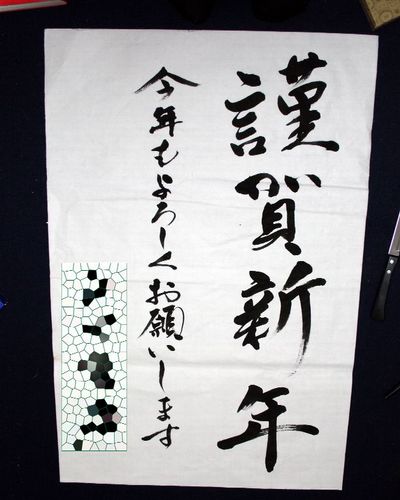 謹賀新年
今年もよろしくお願いします